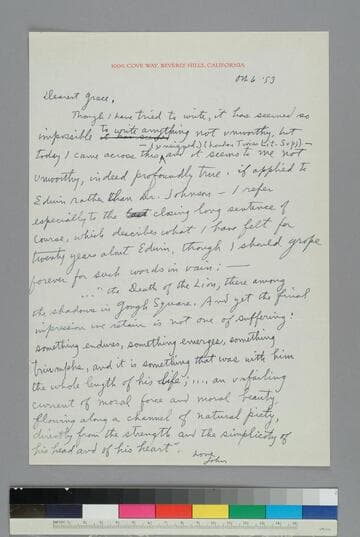 1006 COVE WAY, BEVERLY HILLS, CALIFORNIA
Oct 6 '53
Dearest Grace,
Though I have tried to write, it has seemed so
impossible to write anything not unworthy, but
– (unsigned) (London Times Lit. Sup) –
today I came across this and it seems to me not
unworthy, indeed profoundly true - if applied to
Edwin rather than Dr. Johnson – I refer
especially to the last closing long sentence of
course, which describes what I have felt for
twenty years about Edwin, though I should grope
forever for such words in vain: –
..."the Death of the Lion, there among
the shadows in Gough Square. And yet the final
impression we retain is not one of suffering:
something endures, something emerges, something
triumphs, and it is something that was with him
the whole length of his life; ..., an unfailing
current of moral force and moral beauty
flowing along a channel of natural piety,
directly from the strength and the simplicity of
his head and of his heart".
Love,
John